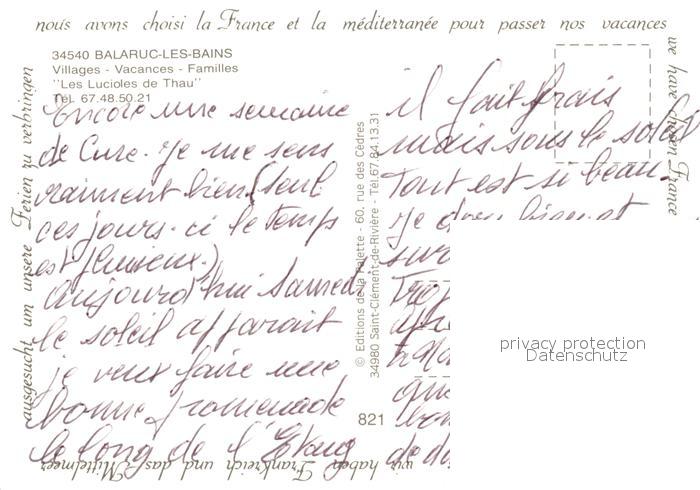 nous avons choisi la France et la méditerranée pour passer nos vacances
34540 BALARUC-LES-BAINS
Villages - Vacances - Familles
"Les Lucioles de Thau"
Tél. 67.48.50.21
Encore une semaine
de Cure. Je me sens
vraiment bien (seul
ces jours-ci le temps
est pluvieux.)
aujourd'hui Samedi
le soleil apparait
je veux faire une
bonne promenade
le long de l'Etang
© Editions de la Palette - 60, rue des Cèdres
34980 Saint-Clément-de-Rivière - Tél. 67.84.13.31
821
il fait frais
mais sous le soleil
Tout est si beau
Je
sur
de
privacy protection
Datenschutz
we have chosen France
wir haben Frankreich und das Mittelmeer
ausgesucht um unsere Ferien zu verbringen